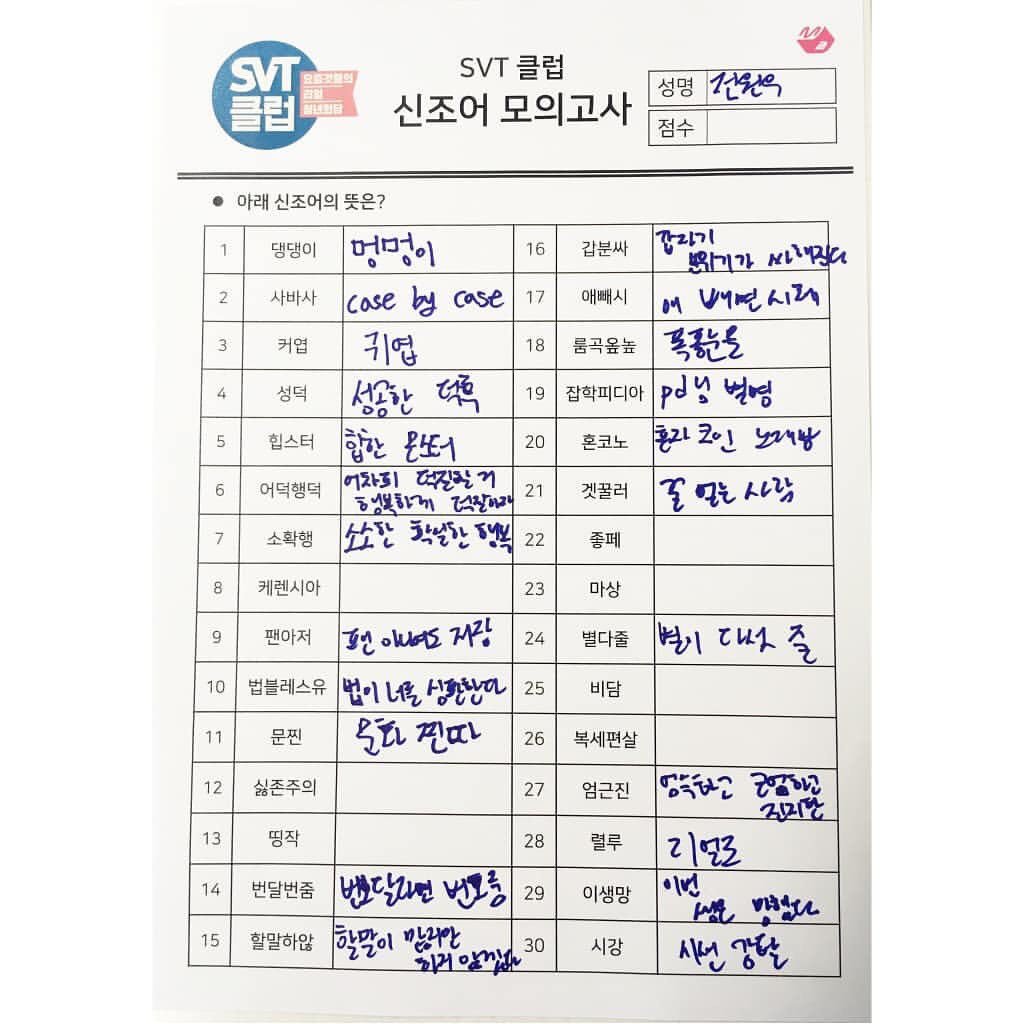 SVT
클럽
요즘것들의
은밀
SVT 클럽
신조어 모의고사
성명 전원우
점수
아래 신조어의 뜻은?
1 댕댕이 멍멍이
2 사바사 case by case
3 커엽 귀엽
4 성덕 성공한 덕후
5 힙스터 힙한 몬스터
6 어덕행덕 어차피 덕질할 거
행복하게 덕질하자
7 소확행 소소한 확실한 행복
8 케렌시아
9 팬아저 팬 아니어도 저장
10 법블레스유 법이 너를 심판한다
11 문찐 문화 찐따
12 싫존주의
13 띵작
14 번달번줌 번호달라면 번호줌
15 할말하않 할말이 많지만
하지 않겠다
16 갑분싸 갑자기
분위기가 싸해진다
17 애빼시 애 빼면 시체
18 롬곡옾눞 폭풍눈물
19 잡학피디아 pd님 별명
20 혼코노 혼자 코인 노래방
21 겟꿀러 꿀 얻는 사람
22 좋페
23 마상
24 별다줄 별이 다섯 줄
25 비담
26 복세편살
27 엄근진 엄숙하고 근엄하고
진지한
28 렬루 리얼로
29 이생망 이번
생은 망했다
30 시강 시선 강탈